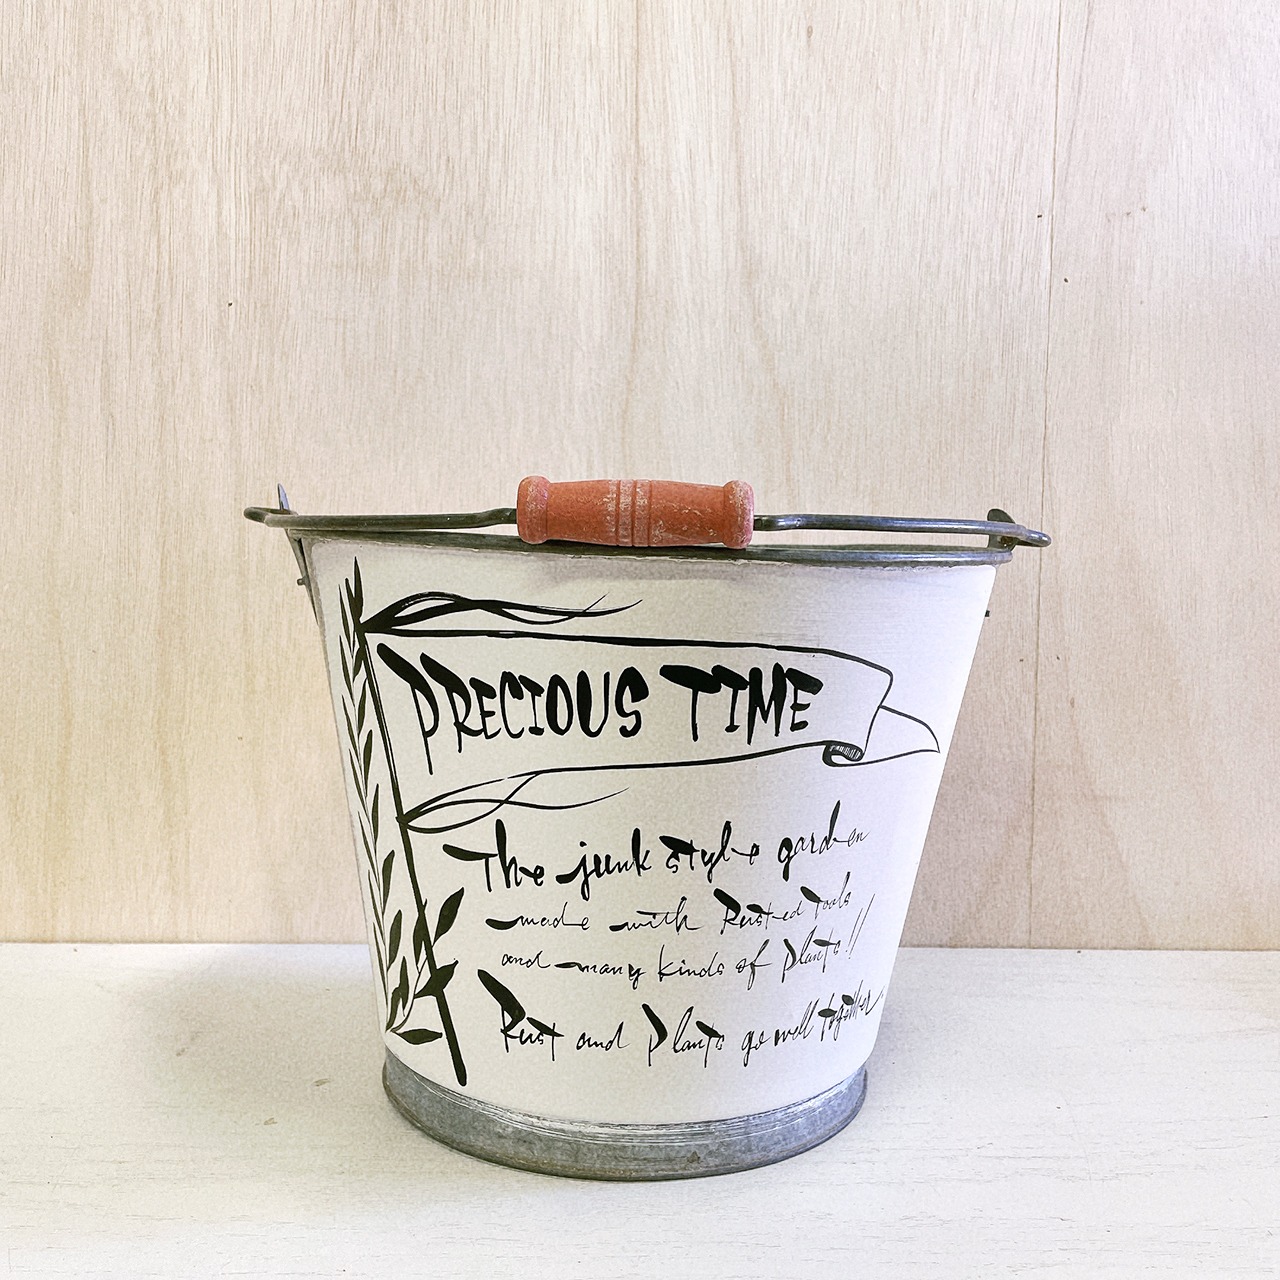 PRECIOUS TIME
The junk style garden
made with Rusted Tools
and many kinds of plants!!
Rust and Plants go well together.